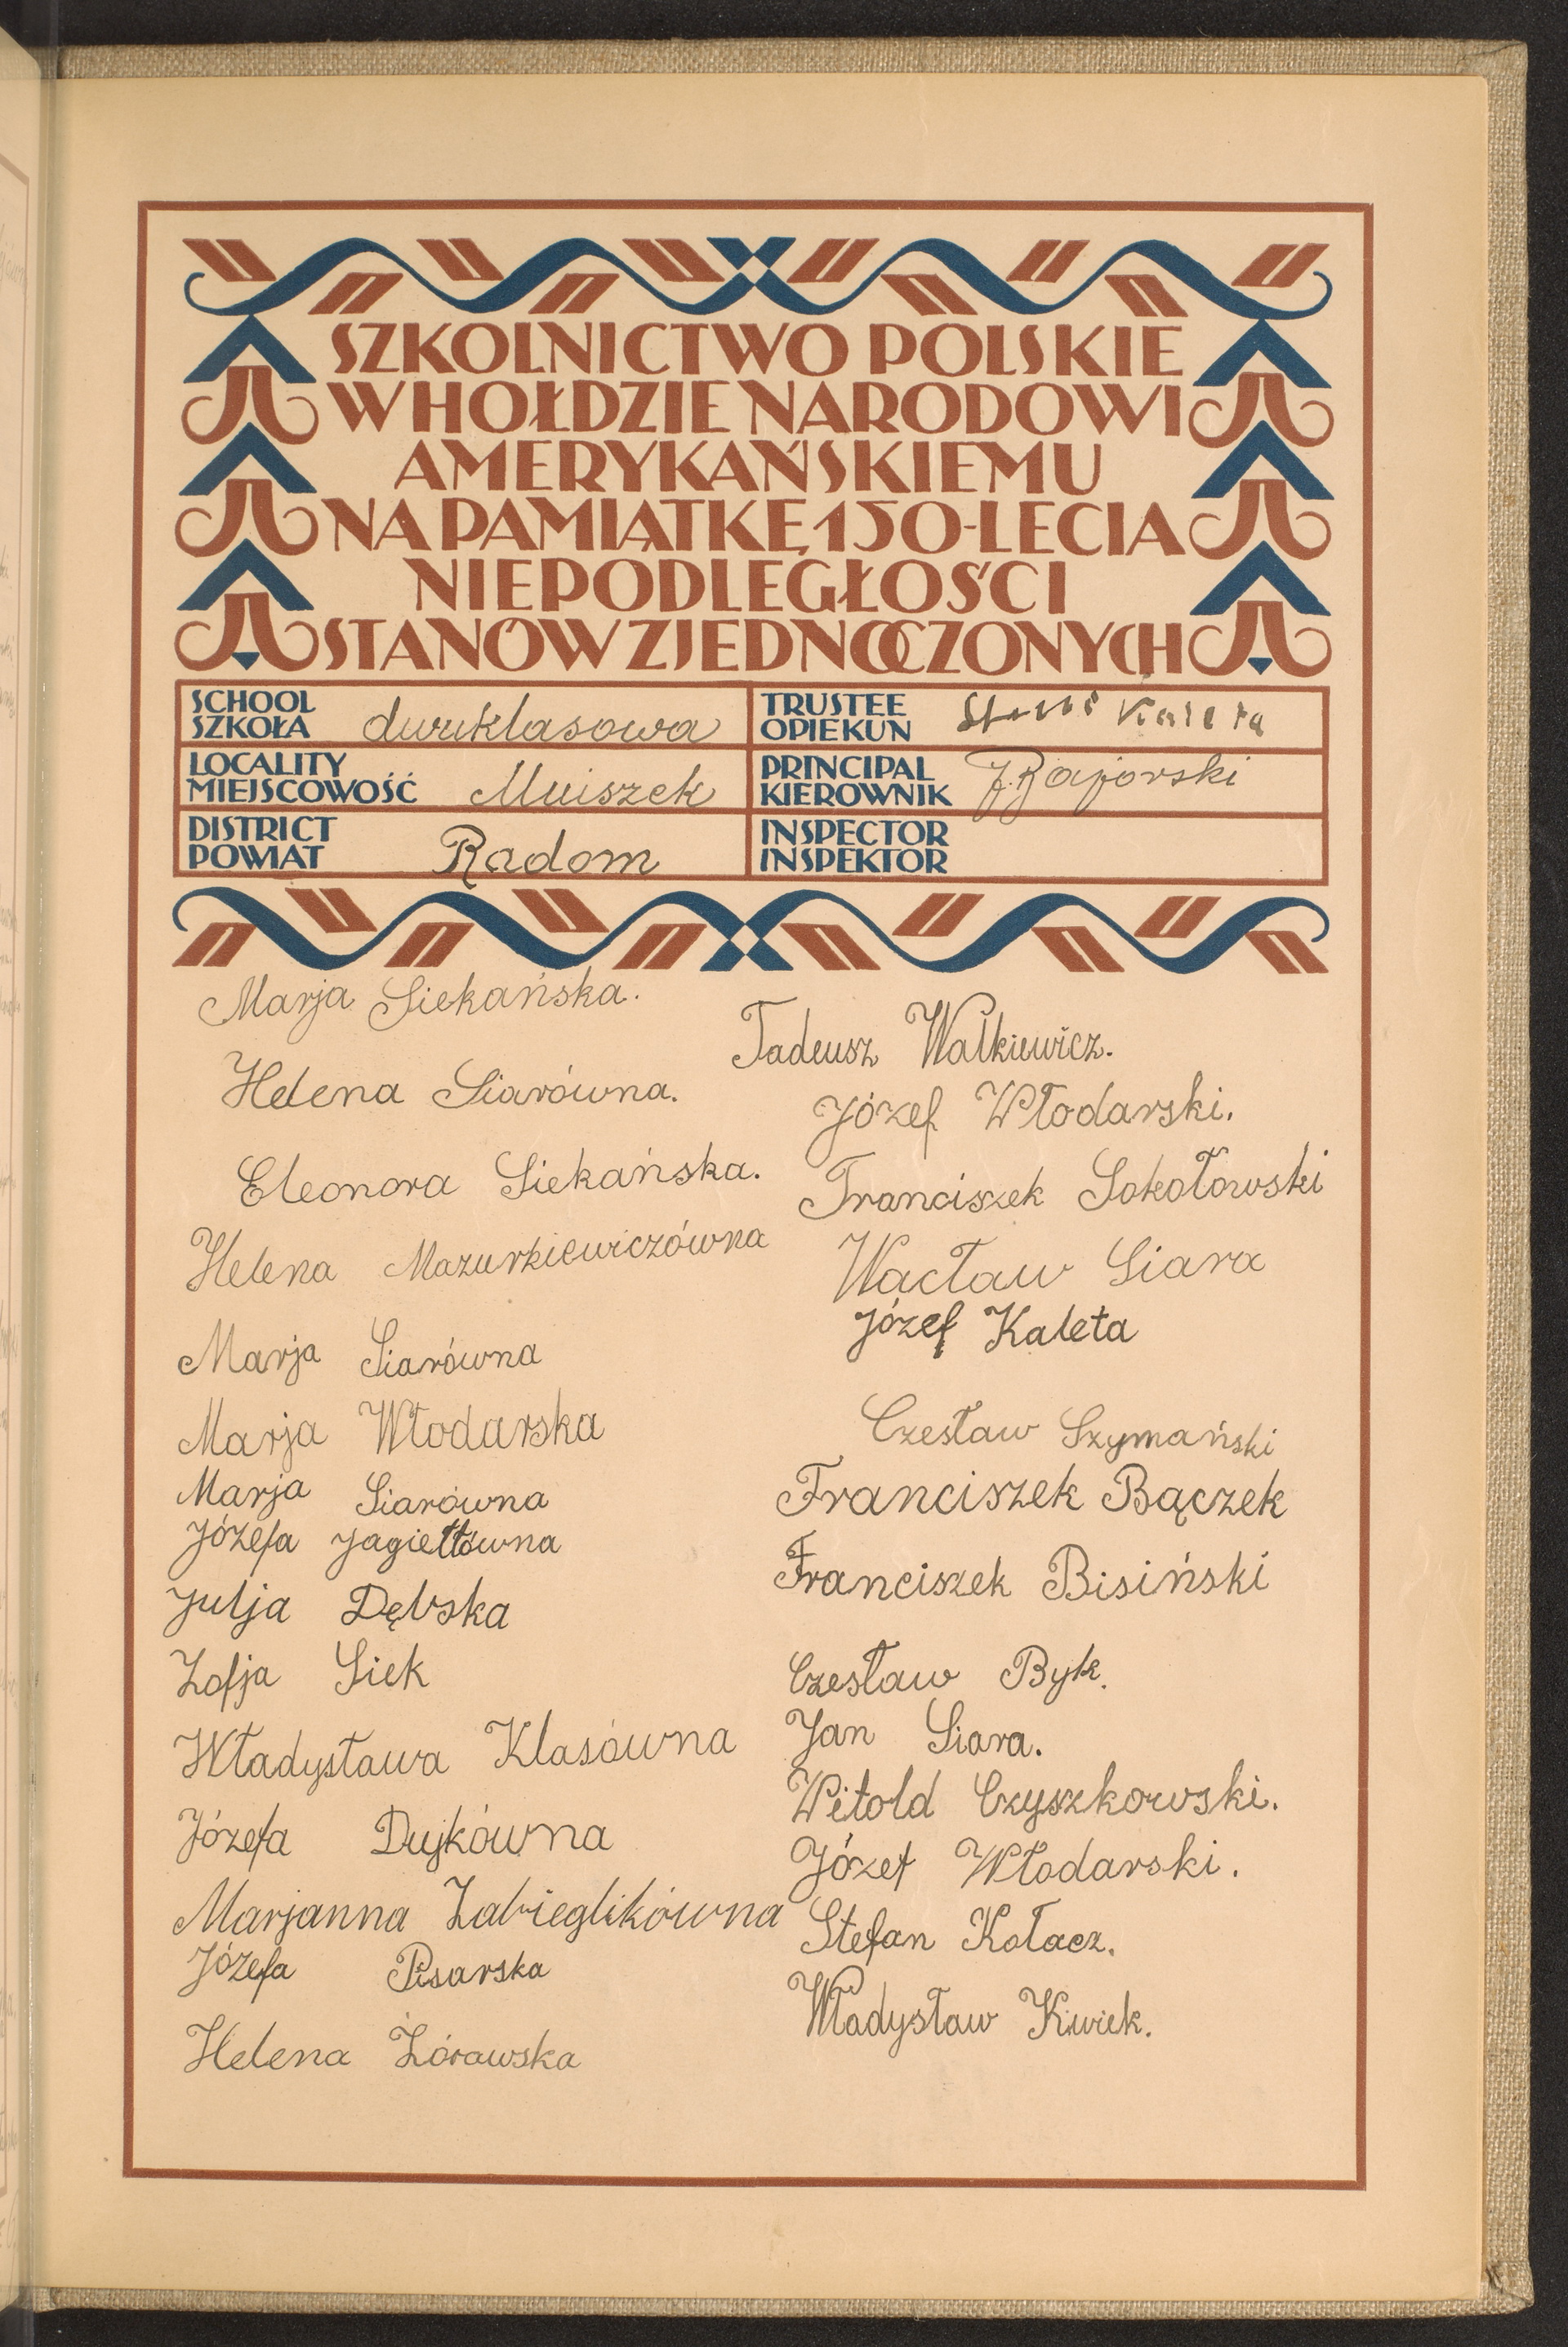 SZKOLNICTWO POLSKIE
W HOŁDZIE NARODOWI
AMERYKAŃSKIEMU
NA PAMIĄTKĘ 150-LECIA
NIEPODLEGŁOŚCI
STANÓW ZJEDNOCZONYCH
SCHOOL
SZKOŁA dwuklasowa
TRUSTEE
OPIEKUN Kaleta
LOCALITY
MIEJSCOWOŚĆ Mniszek
PRINCIPAL
KIEROWNIK
DISTRICT
POWIAT Radom
INSPECTOR
INSPEKTOR
Marja Siekańska.
Helena Siarówna.
Eleonora Siekańska.
Helena Mazurkiewiczówna
Marja Siarówna
Marja Włodarska
Marja Siarówna
Józefa Jagiełłówna
Julja Dębska
Zofja Siek
Władysława Klasówna
Józefa Dujkówna
Marjanna Zabieglikówna
Józefa Pisarska
Helena Żórawska
Tadeusz Walkiewicz.
Józef Włodarski.
Franciszek Sokołowski
Wacław Siara
Józef Kaleta
Czesław Szymański
Franciszek Bączek
Franciszek Bisiński
Czesław Byk.
Jan Siara.
Witold Czyszkowski.
Józef Włodarski.
Stefan Kołacz.
Władysław Kiwiek.